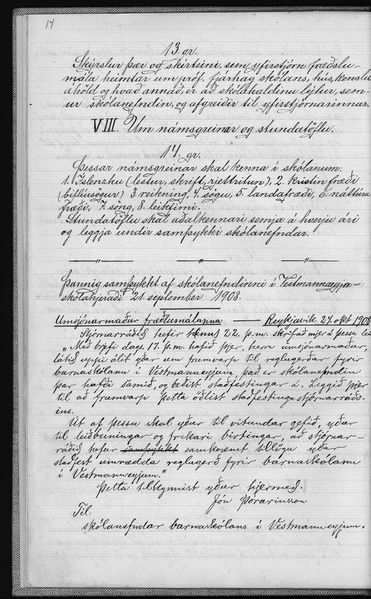 14
13. gr.
Skýrslur þær og skírteini, sem yfirstjórn fræðslu-
mála heimtar um próf, fjárhag skólans, hús, kenslu
áhöld og hvað annað, er að skólahaldinu lýtur, sem-
ur skólanefndin og afgreiðir til yfirstjórnarinnar.
VIII. Um námsgreinar og stundatöflu.
14 gr.
Þessar námsgreinar skal kenna í skólanum:
1. Íslensku (lestur, skrift, rjettritun), 2. Kristin fræði
(biflíusögur) 3. reikning, 4. sögu, 5. landafræði, 6. náttúru
fræði, 7. söng, 8. leikfimi.
Stundatöflu skal aðalkennari semja á hverju ári
og leggja undir samþykki skólanefndar.
Þannig samþykkt af skólanefndinni í Vestmannaeyja-
skólahjeraði 21. september 1908.
Umsjónarmaður fræðslumálanna — Reykjavík 27. okt. 1908
Stjórnarráðið hefir 22. þ. m. skrifað mjer á þessa leið
„Með brjefi dags. 17. þ. m. hafið þjer, herra umsjónarmaður,
látið uppi álit yðar um frumvarp til reglugerðar fyrir
barnaskólann í Vestmannaeyjum, það er skólanefndin
þar hafði samið, og beðist staðfestingar á. Leggið þjer
til að frumvarp þetta öðlist staðfestingu stjórnarráðs-
ins.
Út af þessu skal yður til vitundar gefið, yður
til leiðbeiningar og frekari birtingar, að stjórnar-
ráðið hefur samþykkt samkvæmt tillögu yðar
staðfest umrædda reglugerð fyrir barnaskólann
í Vestmannaeyjum."
Þetta tilkynnist yður hjermeð.
Jón Þórarinsson
Til
skólanefndar barnaskólans í Vestmannaeyjum.